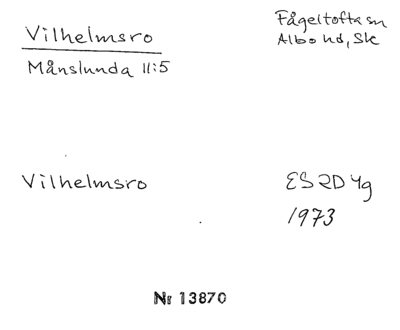 Vilhelmsro
Fågeltofta sn
Albo hd, Sk
Månslunda 11:5
Vilhelmsro
ES 2D 4g
1973
Nr 13870